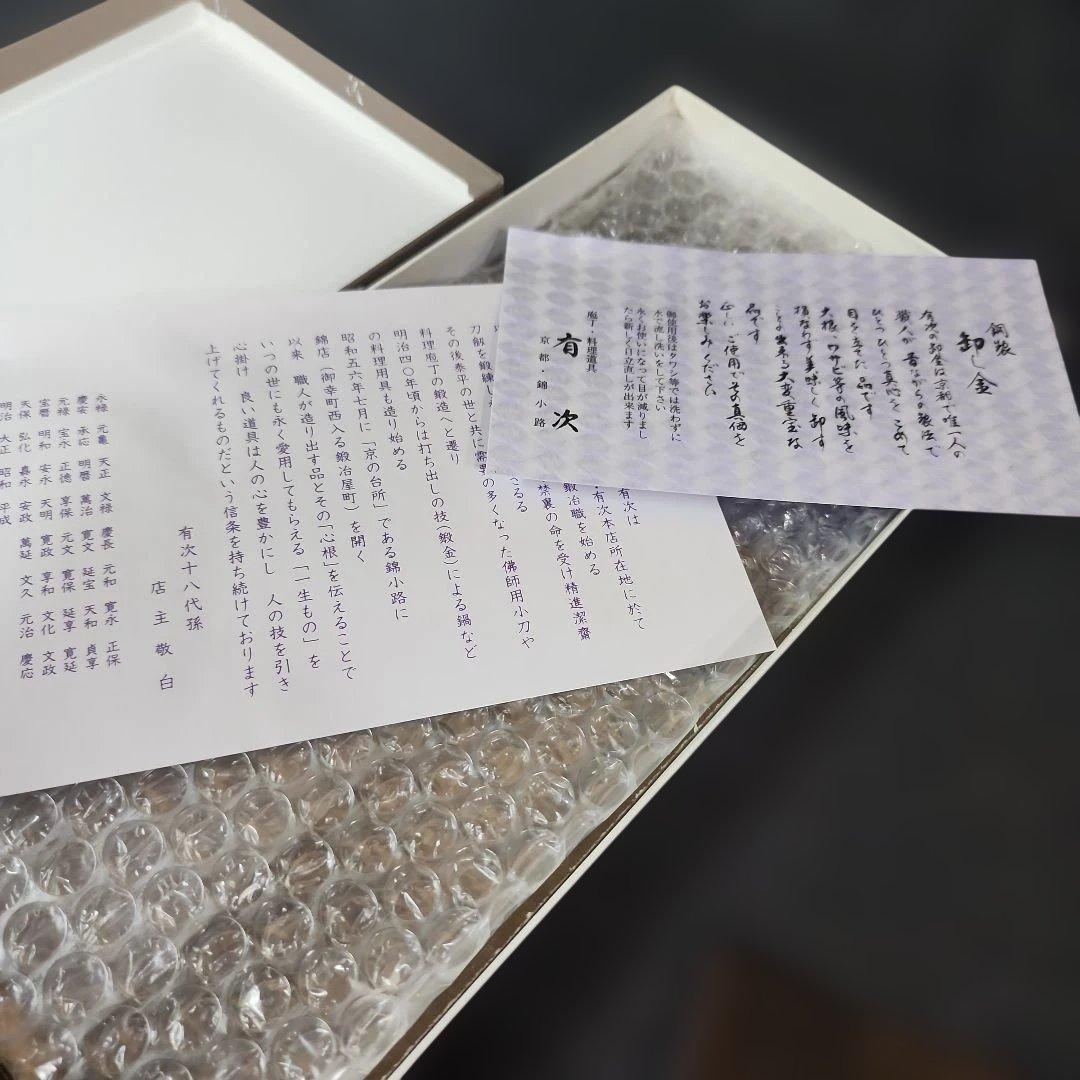 銅製
卸し金
有次の卸金は京都で唯一人の
職人が 昔ながらの製法で
ひとつひとつ真心をこめて
目を立てた品です
大根・ワサビ等の風味を
損なわず美味しく卸す
ことの出来る大変重宝な
品です
正しいご使用でその真価を
お楽しみください
御使用後はタワシ等では洗わずに
水で流し洗いをして下さい
永くお使いになって目が減りまし
たら新しく目立直しが出来ます
庖丁・料理道具
有次
京都・錦小路
有次は
有次本店所在地に於て
鍛冶職を始める
禁裏の命を受け精進潔齋
刀劔を鍛練し
その後泰平の世と共に需要の多くなった佛師用小刀や
料理庖丁の鍛造へと遷り
明治四〇年頃からは打ち出しの技(鍛金)による鍋など
の料理用具も造り始める
昭和五六年七月に「京の台所」である錦小路に
錦店(御幸町西入る鍛冶屋町)を開く
以来 職人が造り出す品とその「心根」を伝えることで
いつの世にも永く愛用してもらえる「一生もの」を
心掛け 良い道具は人の心を豊かにし 人の技を引き
上げてくれるものだという信条を持ち続けております
有次十八代孫
店主敬白
永禄 元亀 天正 文禄 慶長 元和 寛永 正保
慶安 承応 明暦 萬治 寛文 延宝 天和 貞享
元禄 宝永 正徳 享保 元文 寛保 延享 寛延
宝暦 明和 安永 天明 寛政 享和 文化 文政
天保 弘化 嘉永 安政 萬延 文久 元治 慶応
明治 大正 昭和 平成